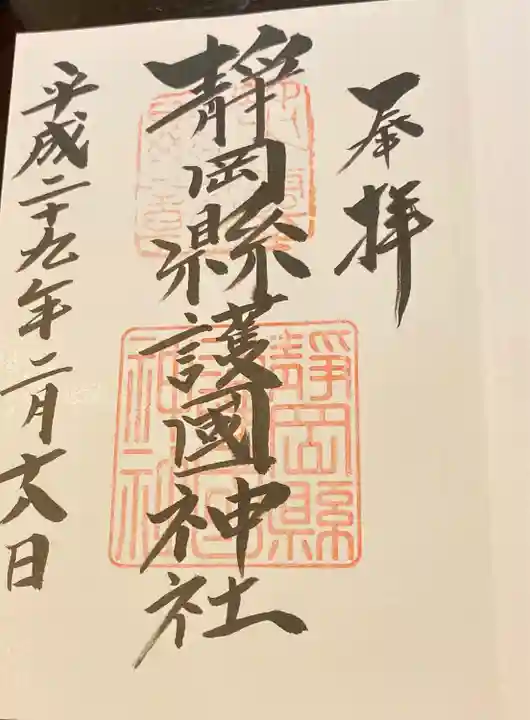 奉拝
静岡縣護國神社
平成二十九年二月十八日
静岡縣
護國
神社